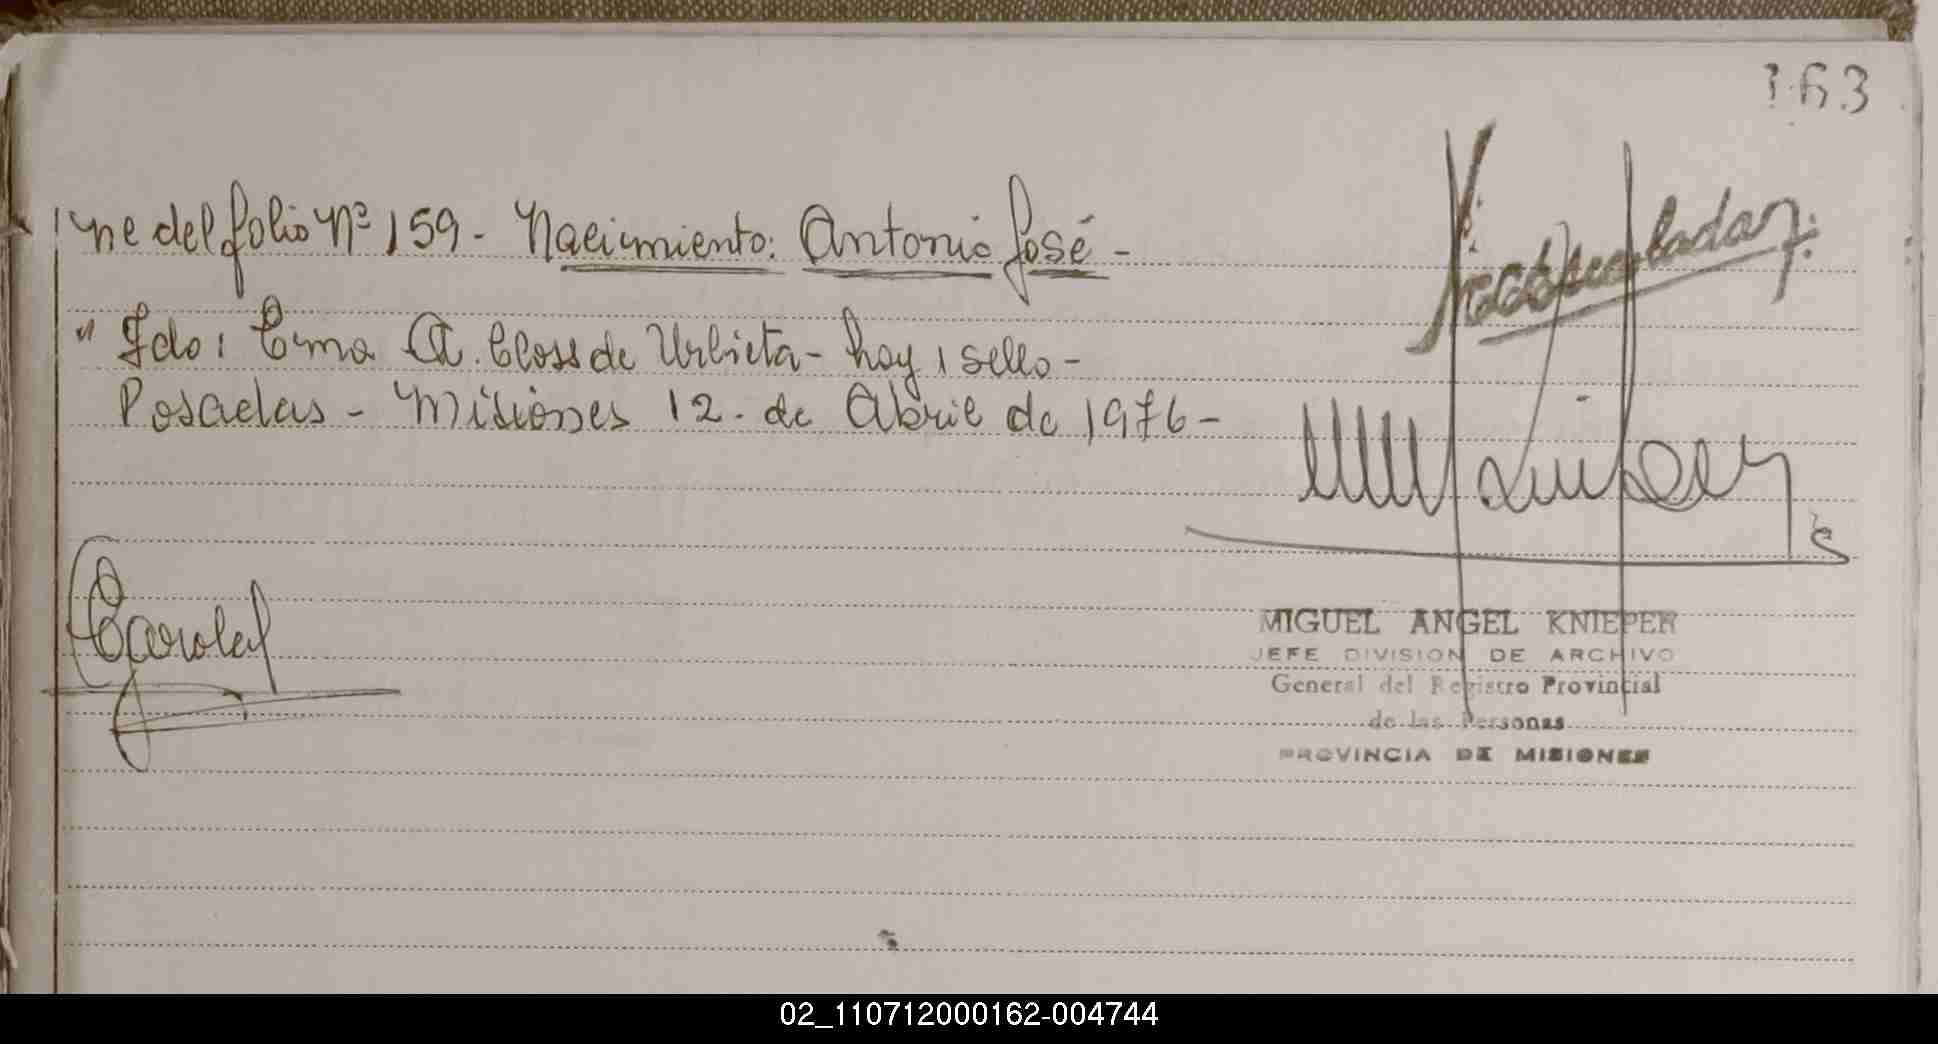 163
ne del folio Nº 159 - Nacimiento: Antonio José -
" Fdo: Ema A. Closs de Urbieta - hay 1 sello -
Posadas - Misiones 12 de Abril de 1976 -
MIGUEL ANGEL KNIEPER
JEFE DIVISION DE ARCHIVO
General del Registro Provincial
de las Personas
PROVINCIA DE MISIONES
02_110712000162-004744